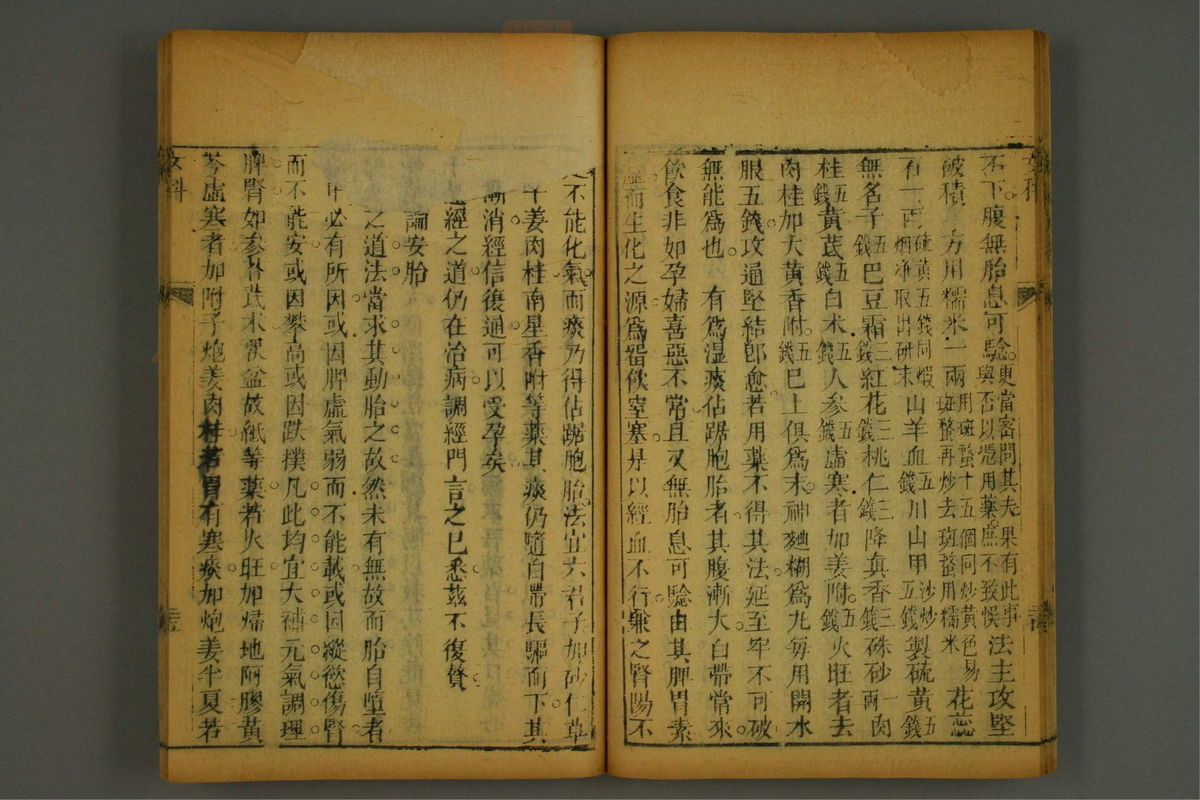 不下腹無胎息可驗更當密問其夫果有此事與否以憑用藥庶不致悞法主攻堅
破積 方用糯米一兩用斑蝥十五個同炒黃色易斑蝥再炒去斑蝥用糯米花蕊
石一兩硫黃五錢同煆烟净取出研末山羊血五錢川山甲沙炒五錢製硫黃五錢
無名子五錢巴豆霜三錢紅花三錢桃仁三錢降真香三錢硃砂一兩肉
桂五錢黃芪五錢白朮五錢人參五錢虛寒者加姜附五錢火旺者去
肉桂加大黃香附五錢已上俱為末神麯糊為丸每用開水
服五錢攻通堅結即愈若用藥不得其法延至牢不可破
無能為也 有為濕痰佔踞胞胎者其腹漸大白帶常來
飲食非如孕婦喜惡不常且又無胎息可驗由其脾胃素
虛而生化之源為畱飲窒塞是以經血不行兼之腎陽不
不能化氣而痰乃得佔踞胞胎法宜六君子加砂仁草
姜肉桂南星香附等藥其痰仍隨白帶長驅而下其
漸消經信復通可以受孕矣
經之道仍在治病調經門言之已悉茲不復贅
論安胎
之道法當求其動胎之故然未有無故而胎自墮者
必有所因或因脾虛氣弱而不能載或因縱慾傷腎
而不能安或因攀高或因跌撲凡此均宜大補元氣調理
脾腎如參芪朮故紙等藥若火旺加歸地阿膠黃
芩虛寒者加附子炮姜肉桂若胃有寒痰加炮姜半夏若
女科